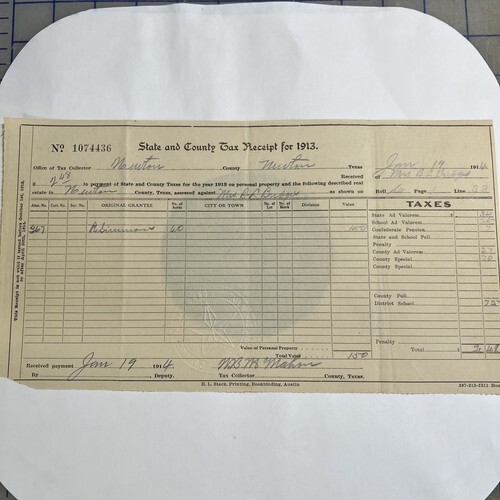 No 1074436 State and County Tax Receipt for 1913.
Office of Tax Collector Newton County Newton Texas Jan 19 1914
Received of Mrs B L
$ 2.48 in payment of State and County Taxes for the year 1913 on personal property and the following described real
estate in Newton County, Texas, assessed against Mrs B L as shown on Roll Page Line
This Receipt is not valid if issued before October 1st, 1913, or after April 30th, 1914.
Abst. No. Cert. No. Sur. No. ORIGINAL GRANTEE No. of Acres CITY OR TOWN No. of Lot No. of Block Division Value TAXES
367 R Simmons 60 150
State Ad Valorem $
School Ad Valorem
Confederate Pension
State and School Poll
Penalty
County Ad Valorem
County Special
County Special
County Poll
District School 75
Value of Personal Property
Penalty
Total Value 150
Total $ 2 48
Received payment Jan 19 1914. W.B. McMahon
By , Deputy. Tax Collector County, Texas.
E. L. Steck, Printing, Bookbinding, Austin